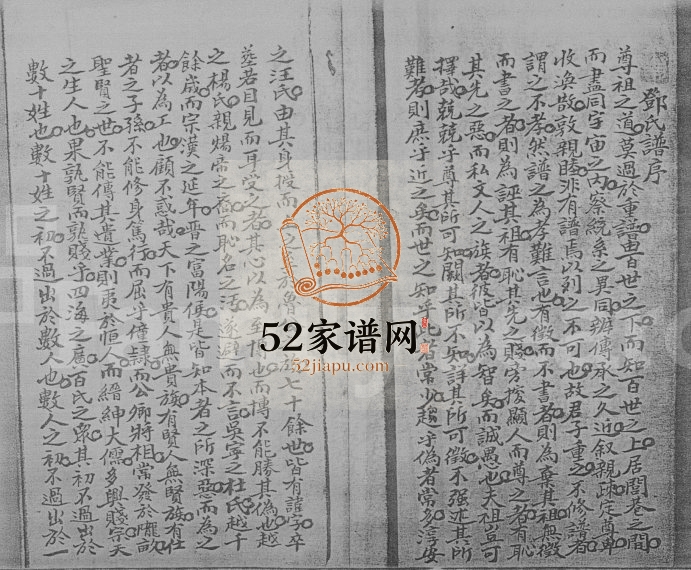 鄧氏譜序
尊祖之道莫過於重譜由百世之下而知百世之上居閭巷之間
而盡同宇宙之內察統系之異同辨傳承之久近叙親疎定尊卑
收渙散敦親睦非有譜焉以列之不可也故君子重之不修譜者
謂之不孝然譜之為孝難言也有徵而不書者則為棄其祖無徵
而書之者則為誣其祖有恥其先之賤旁援顯人而尊之者有恥
其先之惡而私文人之族者彼皆以為智矣而誠愚也夫祖豈可
擇哉兢兢乎尊其所可知闕其所不知詳其所可徵不强述其所
難考則庶乎近之矣而世之知乎此者常少趨乎偽者常多淳安
之汪氏由其身授而 於魯 族七十餘世皆有諱字卒
塟若目見而耳受之者其心以為 博也而博不能勝其偽也越
之楊氏親煬帝之裔而恥名之污遂避而不言吳寧之杜氏越千
餘歲而宗漢之延年晋之富陽侯是皆知本者之所深惡而為之
者以為工也顧不惑哉天下有貴人無貴族有賢人無賢族有仕
者之子孫不能修身篤行而屈乎僮隸而公卿將相常發於隴畝
聖賢之世不能傳其遺業則夷於恒人而縉紳大儒多興賤宗天
之生人也果孰賢而孰賤乎四海之廣百氏之衆其初不過出於
數十姓也數十姓之初不過出於數人也數人之初不過出於一
52家谱网
52jiapu.com